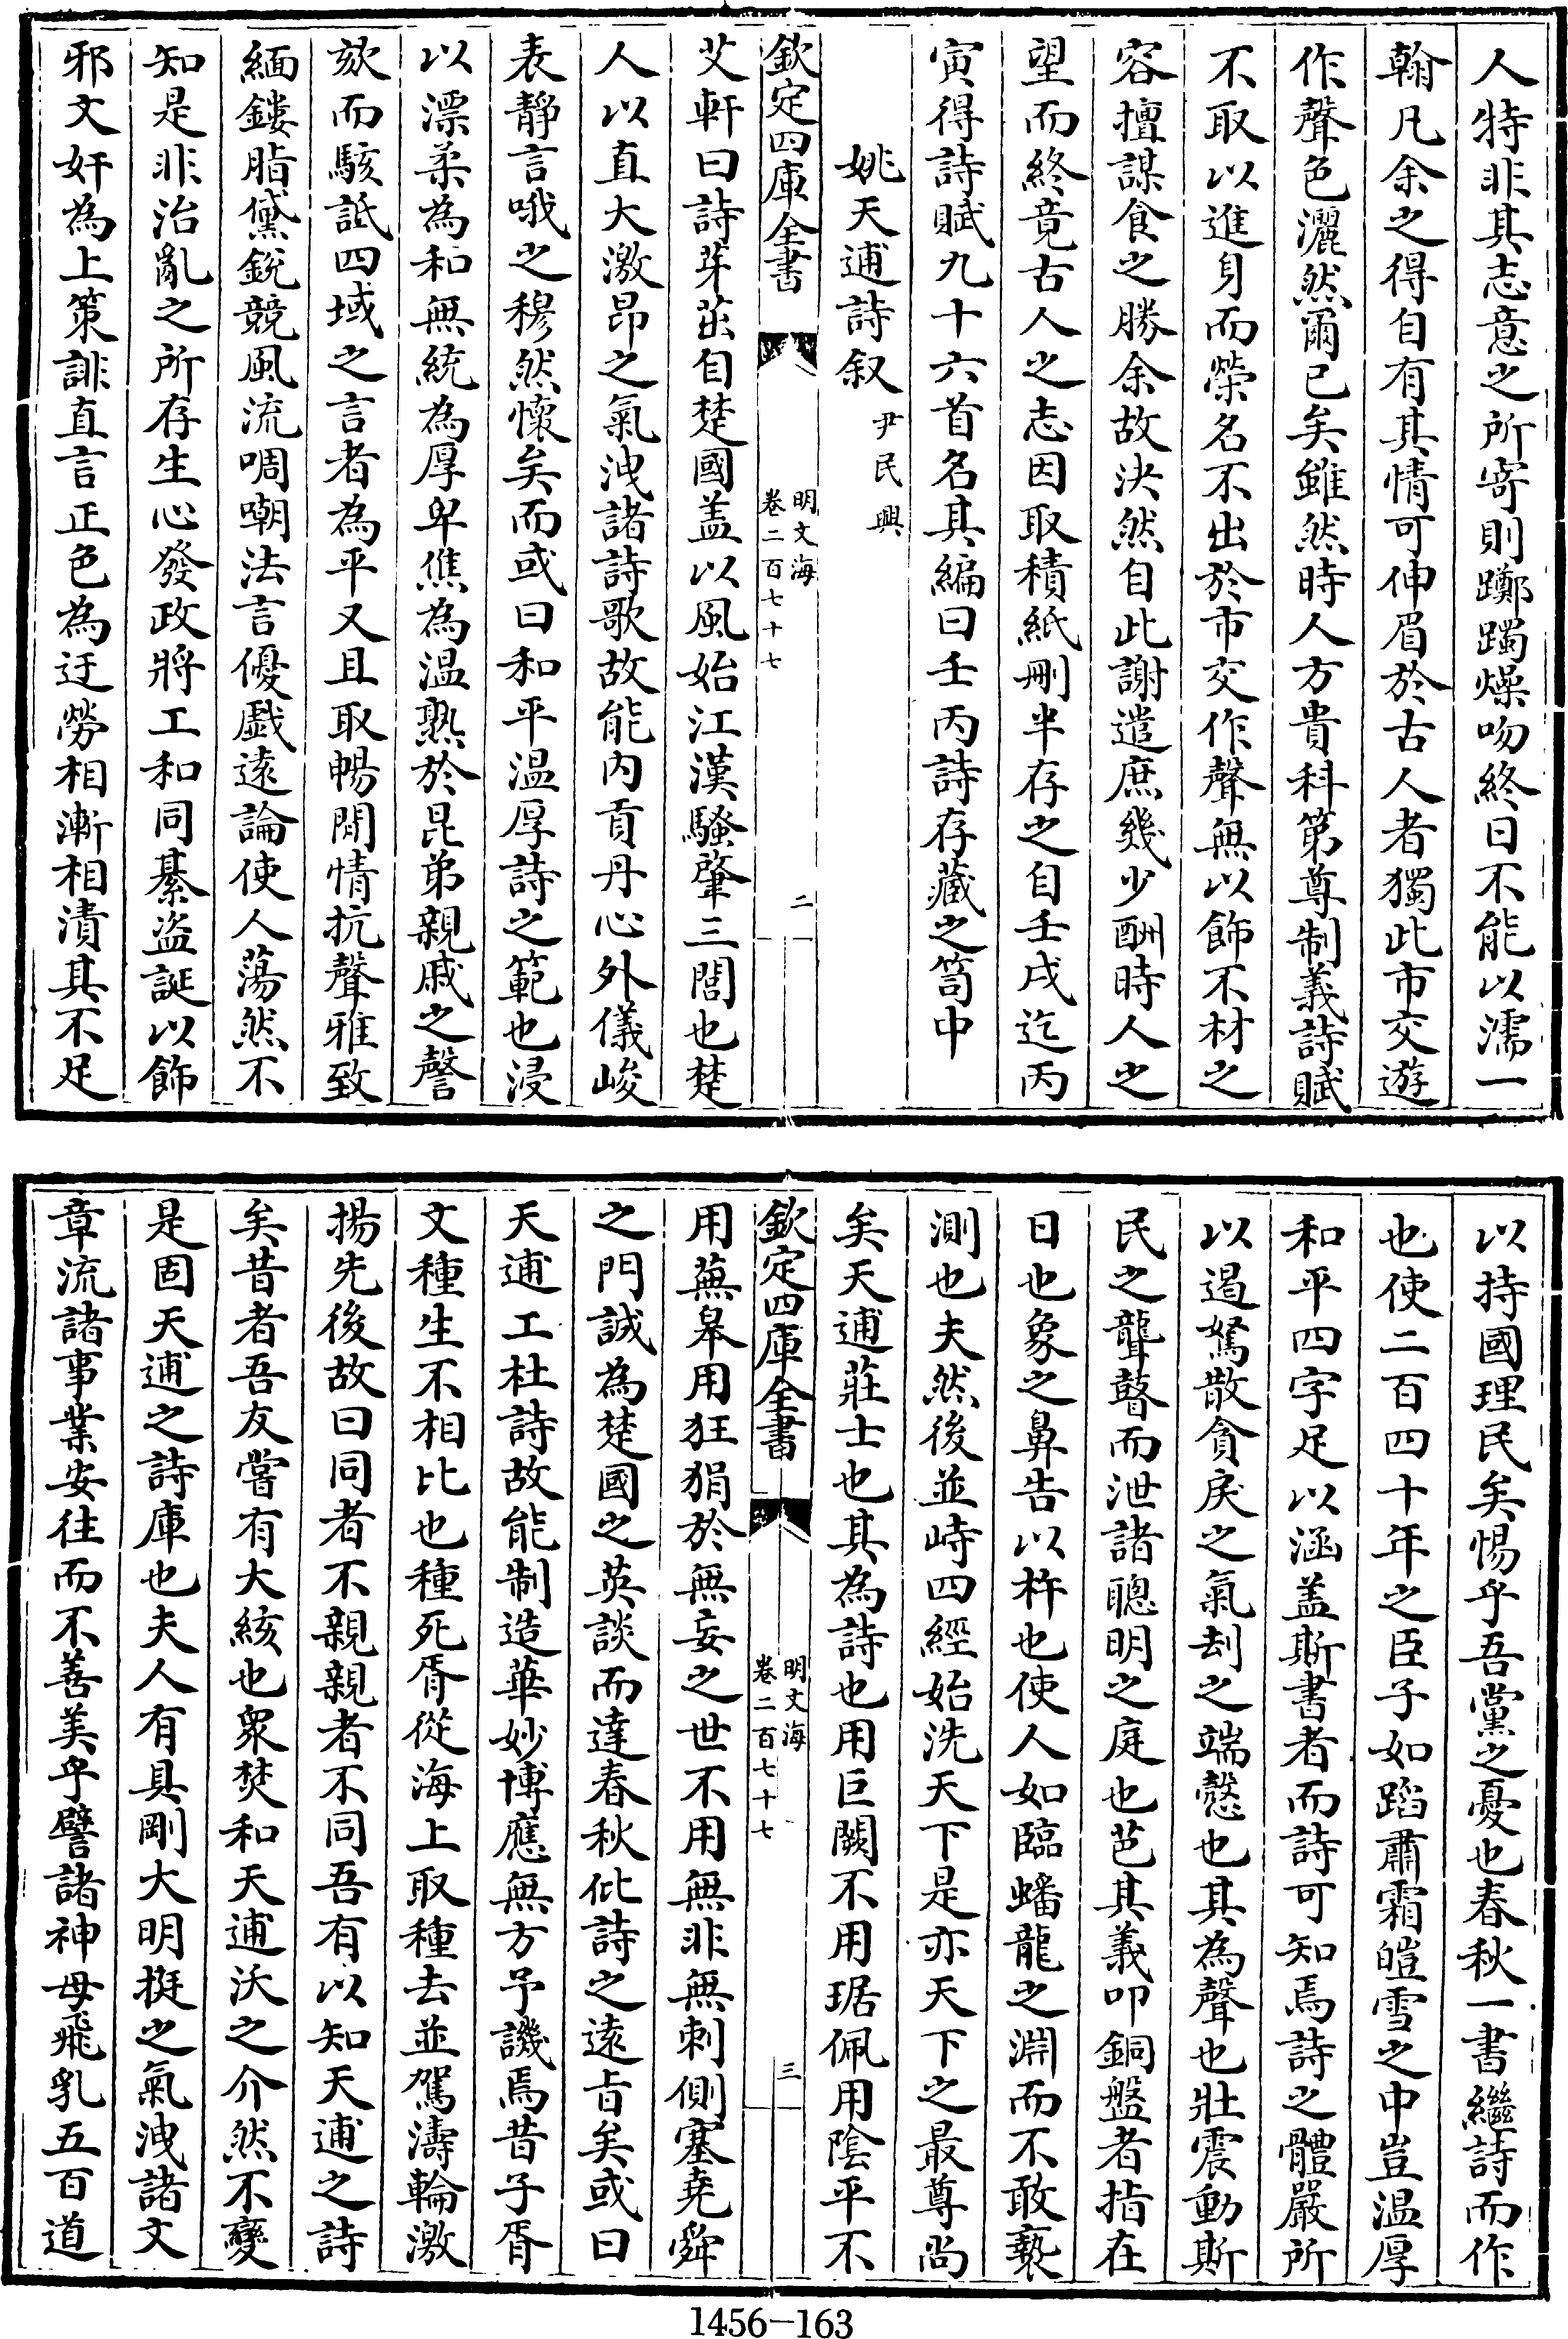 人特非其志意之所寄則躑躅燥吻終日不能以濡一
翰凡余之得自有其情可伸眉於古人者獨此市交遊
作聲色灑然爾已矣雖然時人方貴科第尊制義詩賦
不取以進身而榮名不出於市交作聲無以飾不材之
容擅謀食之勝余故決然自此謝遣庶幾少酬時人之
望而終竟古人之志因取積紙刪半存之自壬戌迄丙
寅得詩賦九十六首名其編曰壬丙詩存藏之笥中
姚天逋詩叙 尹民興
欽定四庫全書
明文海
卷二百七十七
二
艾軒曰詩芽茁自楚國盖以風始江漢騷肇三閭也楚
人以直大激昂之氣洩諸詩歌故能内貢丹心外儀峻
表靜言哦之穆然懷矣而或曰和平温厚詩之範也浸
以漂柔為和無統為厚卑僬為温熟於昆弟親戚之謦
欬而駭詆四域之言者為平又且取暢閒情抗聲雅致
緬鏤脂黛銳競風流啁嘲法言優戲遠論使人蕩然不
知是非治亂之所存生心發政將工和同綦盜誕以飾
邪文奸為上策誹直言正色為迂勞相漸相漬其不足
以持國理民矣惕乎吾黨之憂也春秋一書繼詩而作
也使二百四十年之臣子如蹈肅霜皚雪之中豈温厚
和平四字足以涵盖斯書者而詩可知焉詩之體嚴所
以遏駑散貪戾之氣刦之端慤也其為聲也壯震動斯
民之聾瞽而泄諸聰明之庭也芭其義叩銅盤者指在
日也象之鼻告以杵也使人如臨蟠龍之淵而不敢褻
測也夫然後並峙四經始洗天下是亦天下之最尊尚
矣天逋莊士也其為詩也用巨闕不用琚佩用陰平不
欽定四庫全書
明文海
卷二百七十七
三
用蕪皋用狂狷於無妄之世不用無非無刺側塞堯舜
之門誠為楚國之英談而達春秋佌詩之遠旨矣或曰
天逋工杜詩故能制造華妙博應無方予譏焉昔子胥
文種生不相比也種死胥從海上取種去並駕濤輪激
揚先後故曰同者不親親者不同吾有以知天逋之詩
矣昔者吾友嘗有大絯也衆焚和天逋沃之介然不變
是固天逋之詩庫也夫人有具剛大明挺之氣洩諸文
章流諸事業安往而不善美乎譬諸神母飛乳五百道
1456-163